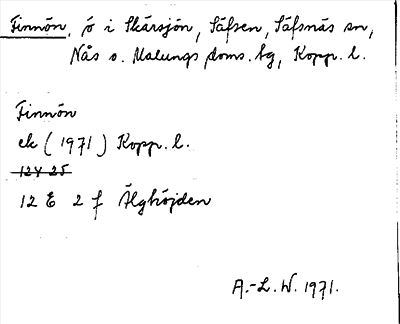 Finnön, ö i Skärsjön, Säfsen, Säfsnäs sn,
Nås o. Malungs doms. hg, Kopp. l.
Finnön
ek (1971) Kopp. l.
12Y 25
12 E 2 f Älghöjden
A.-L. W. 1971.